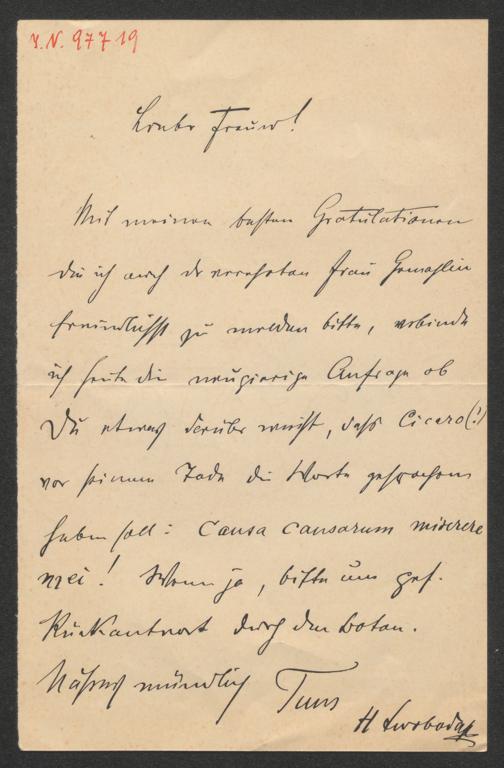 I.N. 97719
Lieber Freund!
Mit meinen besten Gratulationen
die ich auch der verehrten Frau Gemahlin
freundlichst zu melden bitte, verbinde
ich heute die neugierige Anfrage ob
Du etwas darüber weißt, dass Cicero (!)
vor seinem Tode die Worte gesprochen
haben soll: Causa causarum miserere
mei! Wenn ja, bitte um gef.
Rückantwort durch den Boten.
Näheres mündlich Tuus
H Swoboda